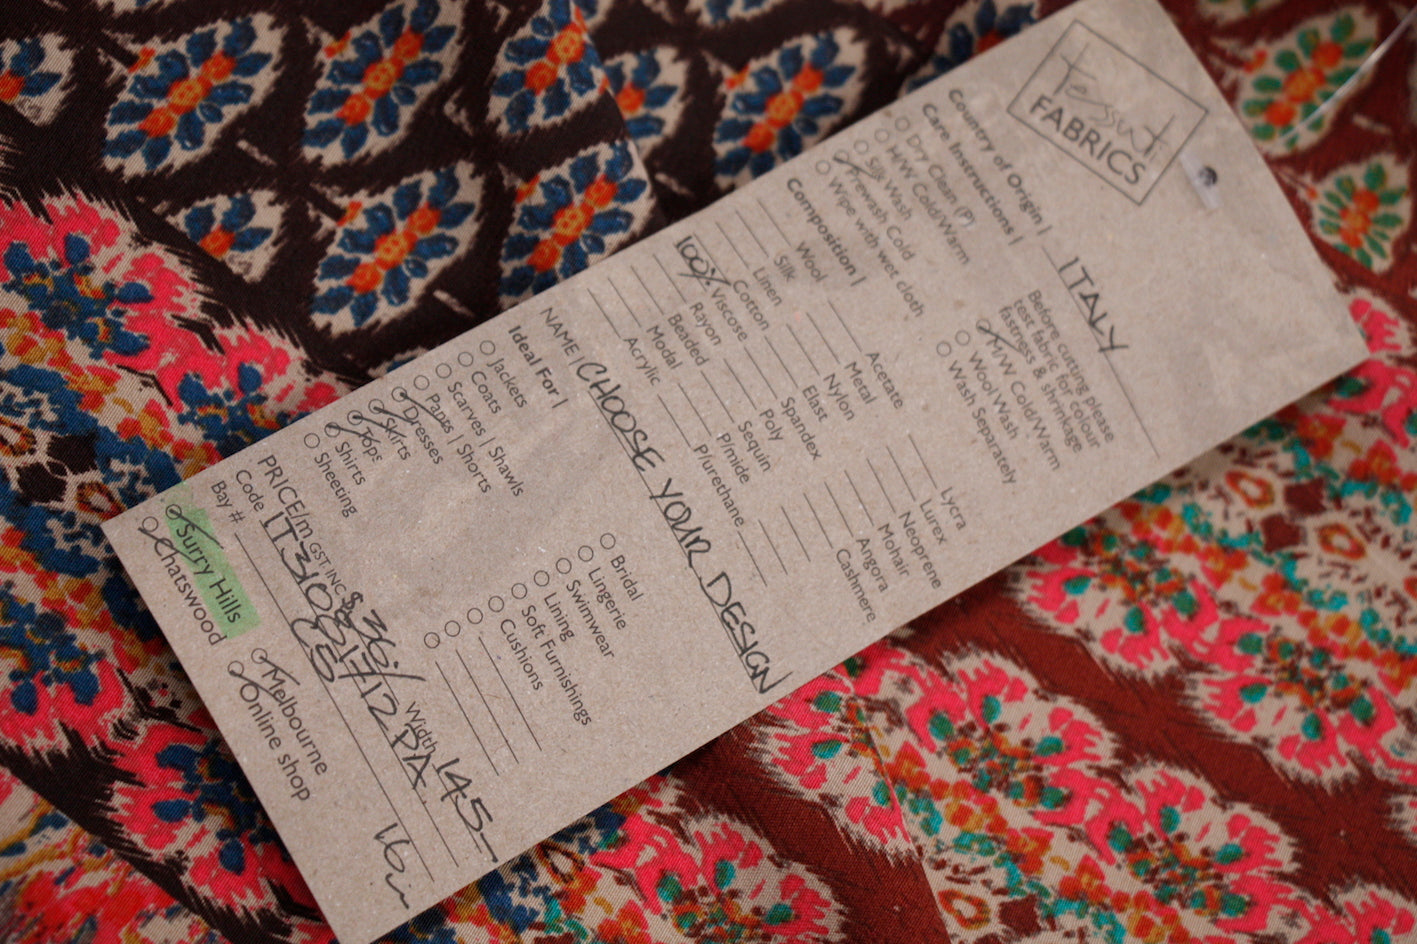 Tessuti
FABRICS
Country of Origin | ITALY
Care Instructions |
Before cutting please
test fabric for colour
fastness & shrinkage
Dry Clean (P)
H/W Cold/Warm
Silk Wash
Prewash Cold
Wipe with wet cloth
M/W Cold/Warm
Wool Wash
Wash Separately
Composition |
Wool
Silk
Linen
Cotton
100% Viscose
Rayon
Beaded
Modal
Acrylic
Acetate
Metal
Nylon
Elast
Spandex
Poly
Sequin
P/mide
P/urethane
Lycra
Lurex
Neoprene
Mohair
Angora
Cashmere
NAME | CHOOSE YOUR DESIGN
Ideal For |
Jackets
Coats
Scarves | Shawls
Pants | Shorts
Dresses
Skirts
Tops
Shirts
Sheeting
Bridal
Lingerie
Swimwear
Lining
Soft Furnishings
Cushions
PRICE/m GST INC $ 36 Width 145
Code
Bay #
Surry Hills
Chatswood
Melbourne
Online shop